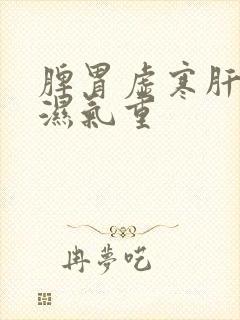 脾胃虛寒肝
濕氣重
冉夢呓